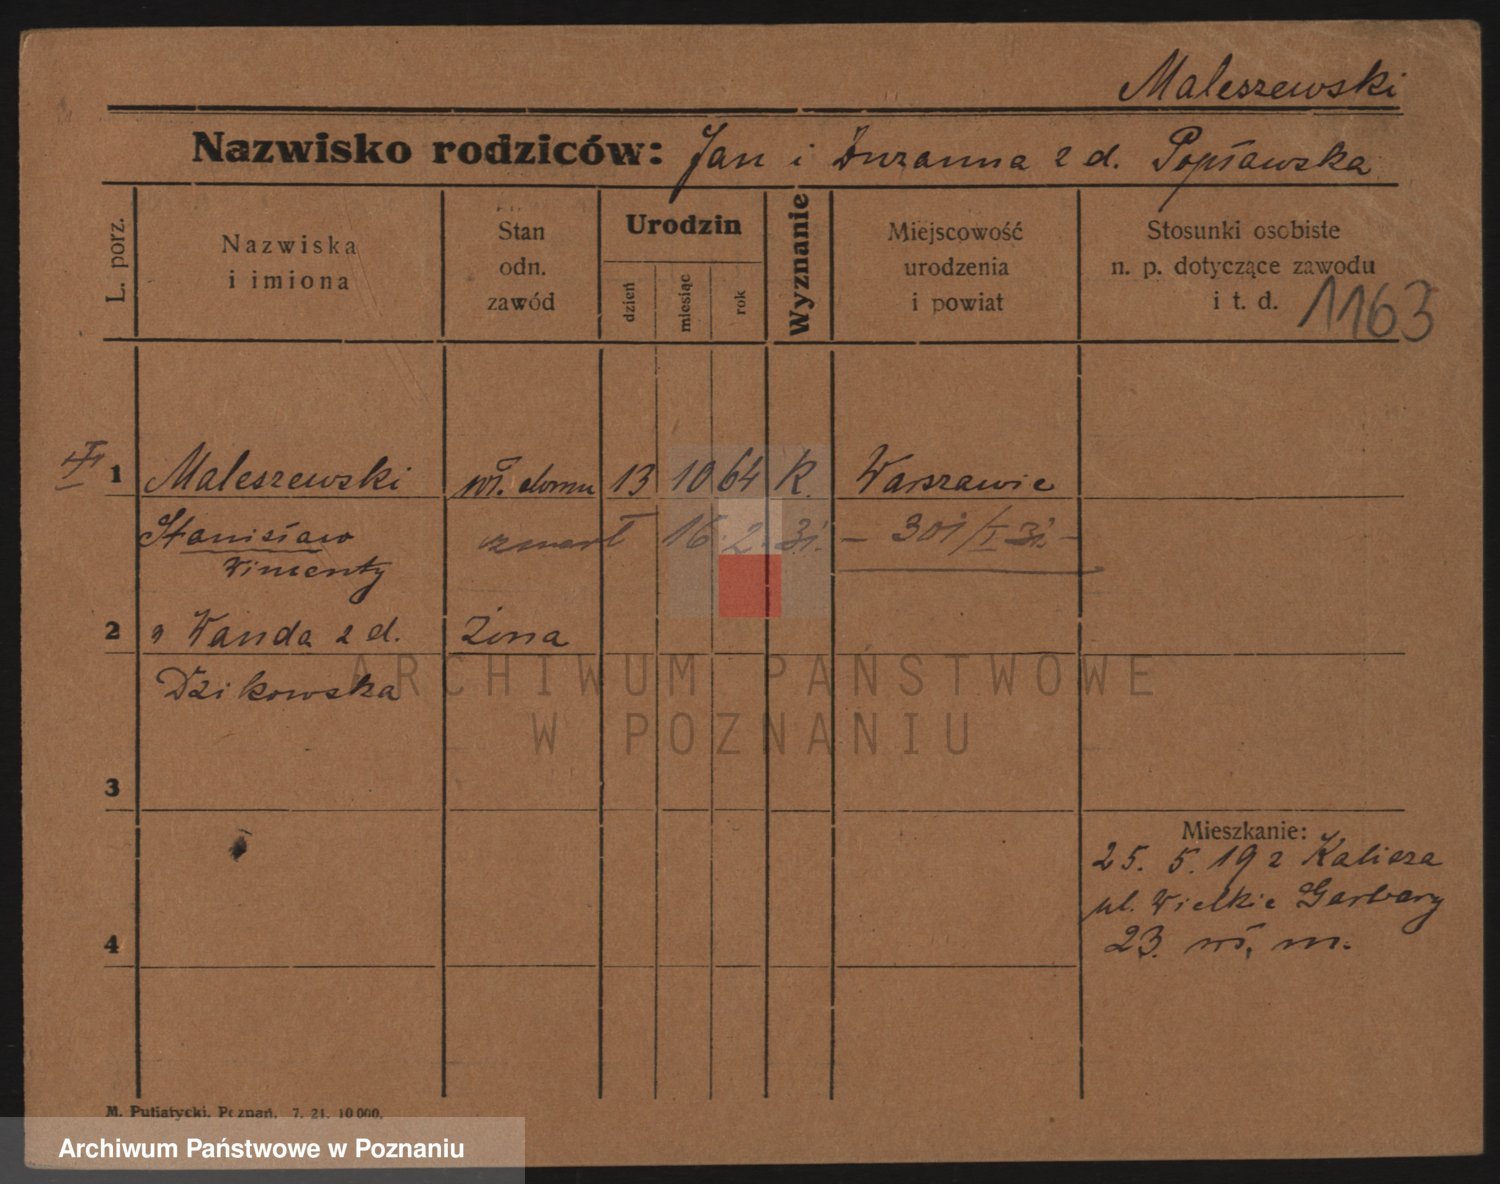 Maleszewski
Nazwisko rodziców: Jan i Zuzanna z d. Popławska
L. porz.
Nazwiska
i imiona
Stan
odn.
zawód
Urodzin
dzień
miesiąc
rok
Wyznanie
Miejscowość
urodzenia
i powiat
Stosunki osobiste
n. p. dotyczące zawodu
i t. d.
1163
1 Maleszewski wł. domu 13 10 64 K. Warszawie
Stanisław zmarł 16. 2. 31. – 301/I 31. –
Wincenty
2 " Wanda z d. żona
Dzikowska
3
Mieszkanie:
25. 5. 19 z Kalisza
ul. Wielkie Garbary
23. wł. m.
4
M. Putiatycki, Poznań. 7. 21. 10 000.
ARCHIWUM PAŃSTWOWE
W POZNANIU
Archiwum Państwowe w Poznaniu